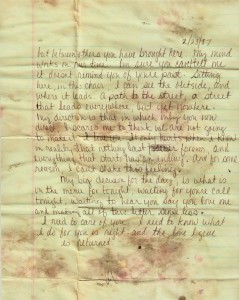 2/23/97
but between others you have brought here. My mind
works on overtime. I'm sure you can tell me
it doesn't remind you of yours past. Sitting
here, in the chair I can see the outside, and
where it leads. A path to the street, a street
that leads everywhere, but yet nowhere.
My directions that in which only you now
direct. I scared me to think we are not going
to make it. I know in some here when I know
in reality, that nothing last forever, and
everything that starts has an ending, and for some
reason, I can't shake this feeling.
My big decision for the day, is what is
on the menu for tonight, waiting for your call
tonight, waiting to hear you say you love me
and making all of this letter sense less.
I need to care of you. I need to know what
I do for you is right, and the love I give
is returned.